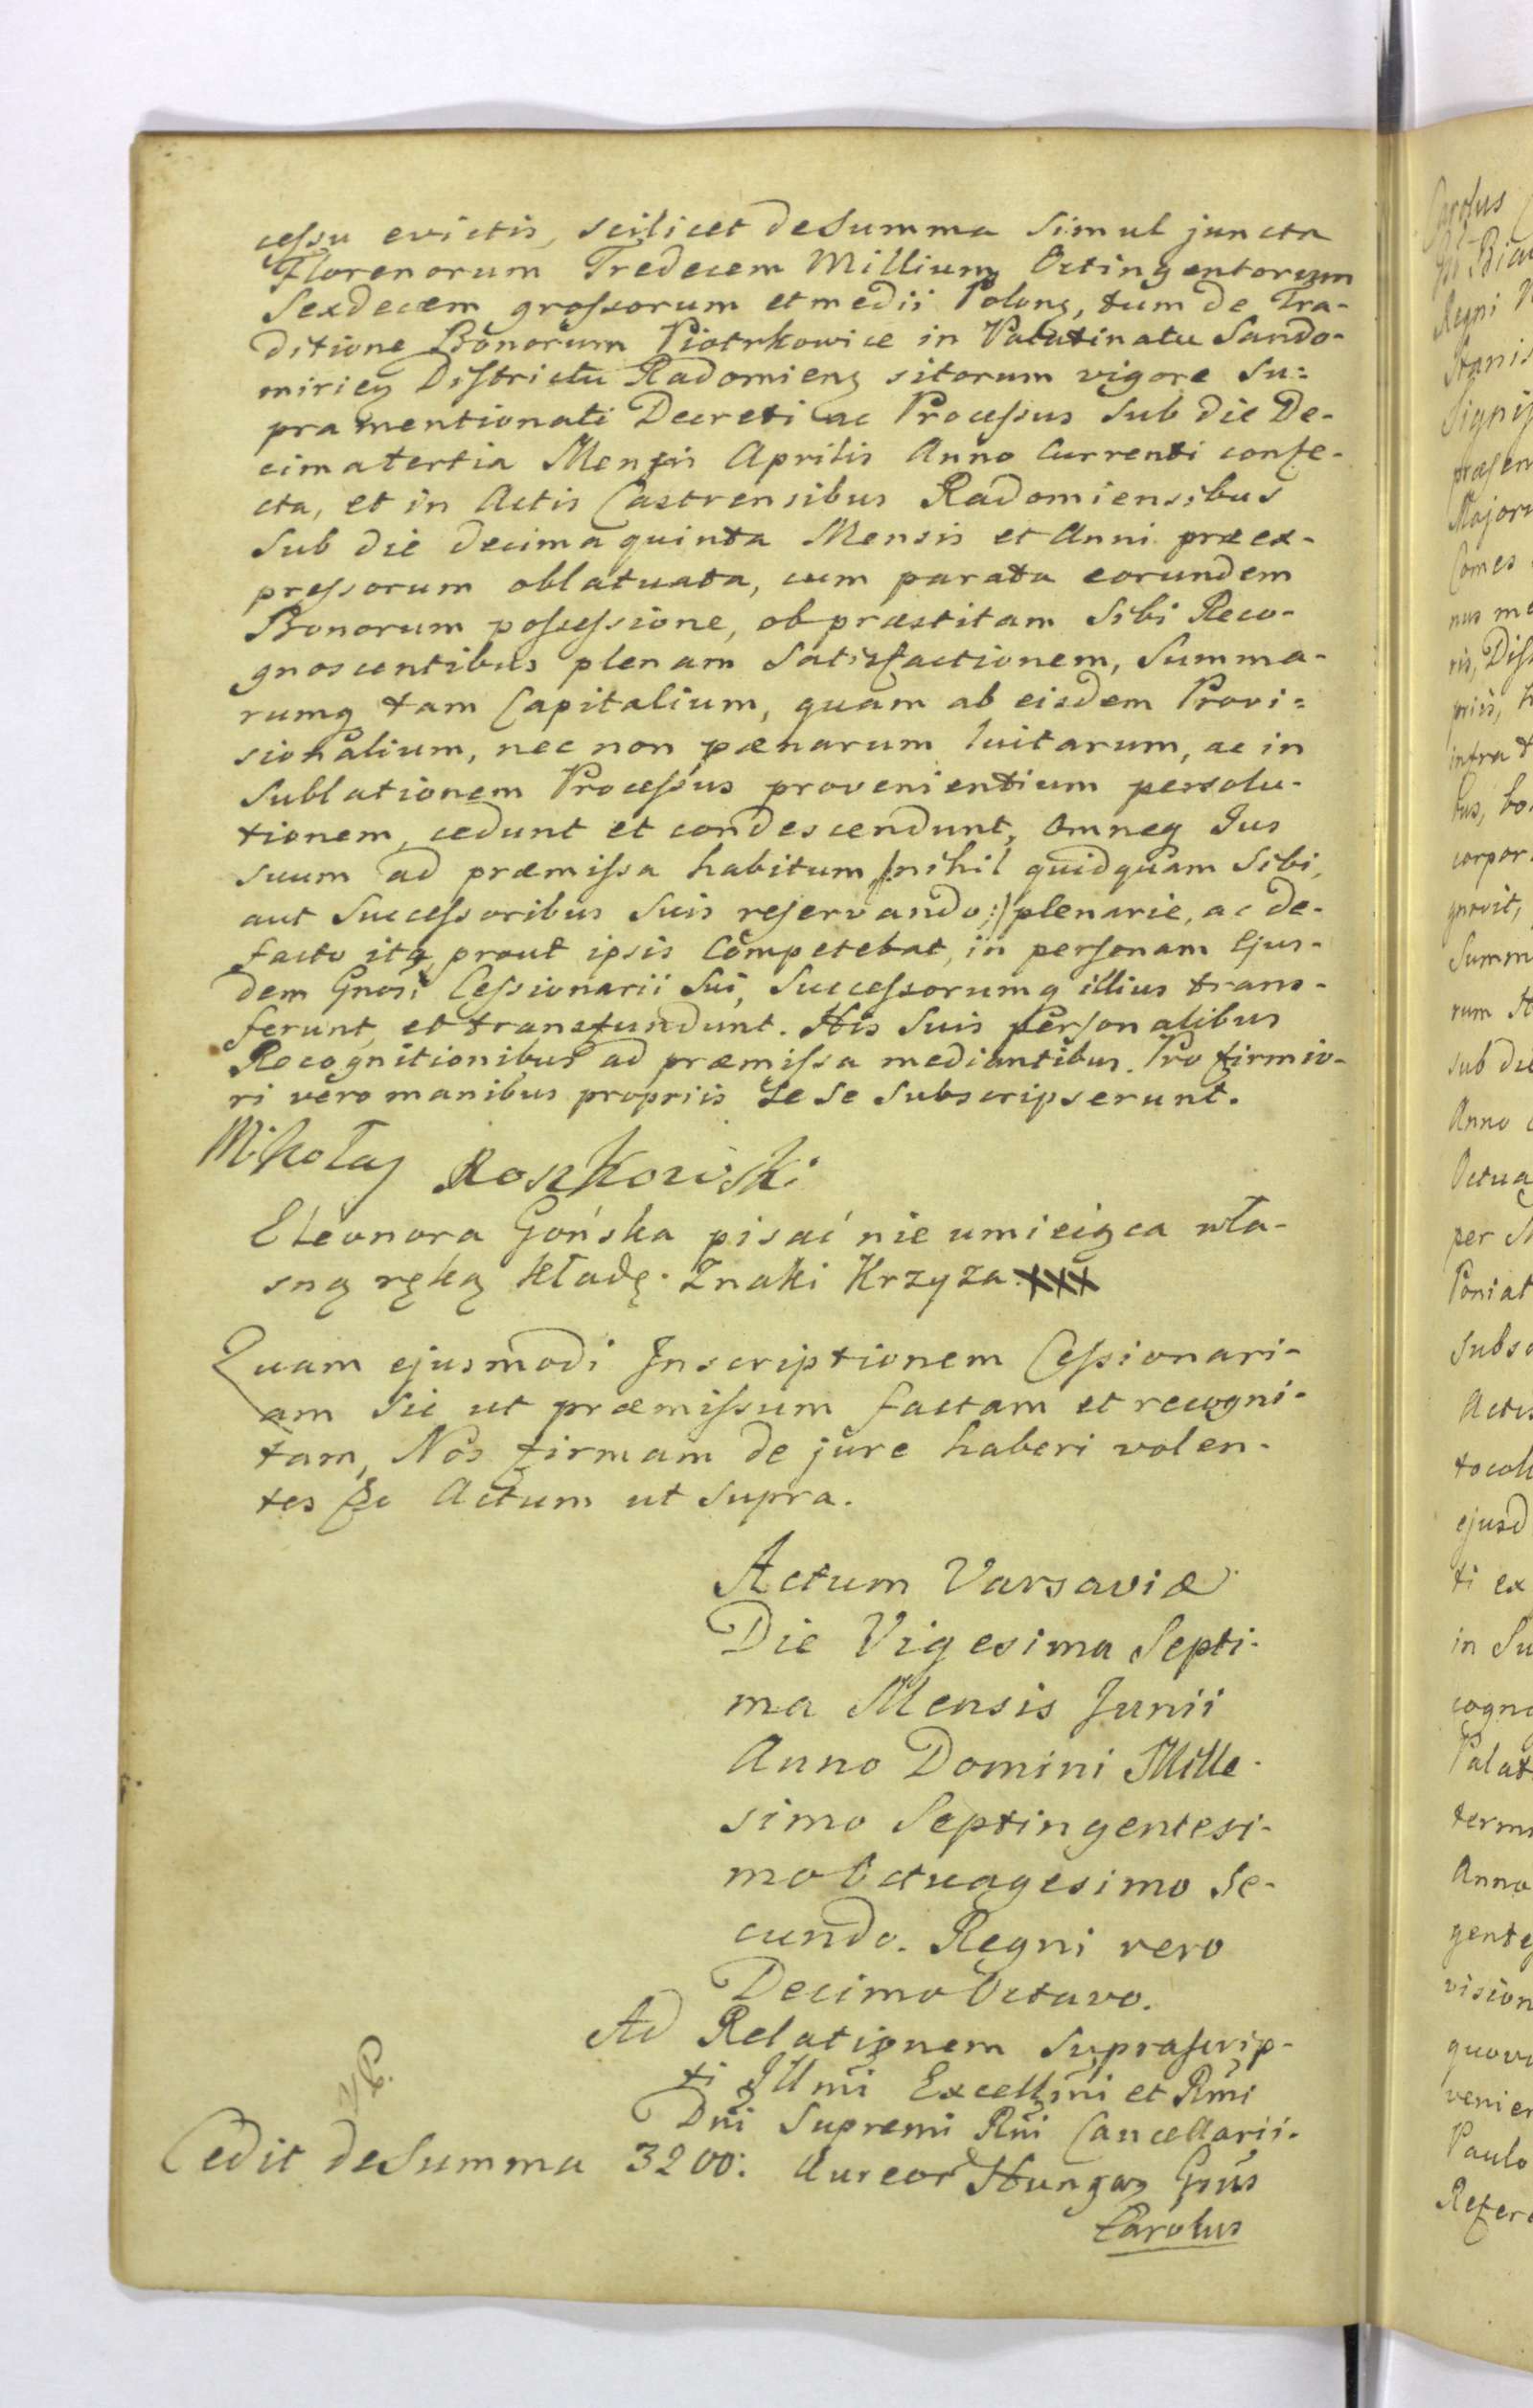 cessu evictis, scilicet de Summa simul juncta
Florenorum Tredecem Millium Octingentorum
Sexdecem grossorum et medii Polonz, tum de Tra-
ditione Bonorum Piotrkowice in Palatinatu Sando-
mirien Districtu Radomienz sitorum vigore Su=
pramentionati Decreti ac Processus sub die De-
cimatertia Mensis Aprilis Anno Currenti confe-
cta, et in Actis Castrensibus Radomiensibus
Sub die decima quinta Mensis et Anni præex-
pressorum oblatuata, cum parata eorundem
Bonorum possessione, ob præstitam Sibi Reco-
gnoscentibus plenam Satisfactionem, Summa-
rumq tam Capitalium, quam ab eisdem Provi=
sionalium, nec non pænarum luitarum, ac in
Sublationem Processus provenientium persolu-
tionem, cedunt et condescendunt, Omneq Jus
suum ad præmissa habitum /:nihil quidquam Sibi,
aut Successoribus suis reservando:/ plenarie, ac de-
facto itq, prout ipsis Competebat, in personam Ejus-
dem Gnosi Cessionarii Sui, Successorumq illius trans-
ferunt, et transfundunt. His Suis personalibus
Recognitionibus ad præmissa mediantibus. Pro firmio-
ri vero manibus propriis Se Se Subscripserunt.
Mikołay Roszkowski
Eleonora Gońska pisać nie umieiąca wła-
sną ręką kładę Znaki Krzyza XXX
Quam ejusmodi Inscriptionem Cessionari-
am Sic ut præmissum factam et recogni-
tam, Nos firmam de jure haberi volen-
tes &c Actum ut Supra.
Actum Varsaviæ
Die Vigesima Septi-
ma Mensis Junii
Anno Domini Mille-
simo Septingentesi-
mo Octuagesimo Se-
cundo. Regni vero
Decimo Octavo.
Ad Relationem Suprascrip-
ti Illmi Excellmi et Rmi
Dni Supremi Rni Cancellarii.
Cedit de Summa 3200: Aureor Hungar Gnus
Carolus